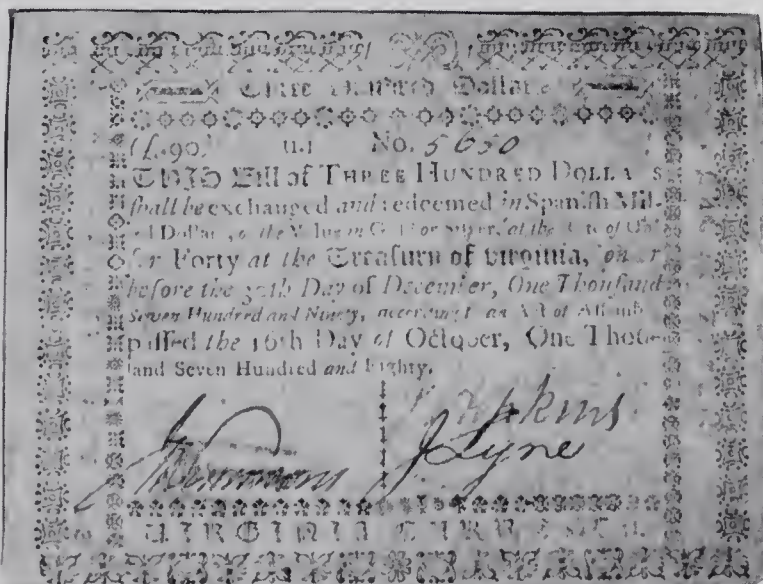 Three Hundred Dollars
(£.90) No. 5650
THIS Bill of THREE HUNDRED DOLLARS
shall be exchanged and redeemed in Spanish Mil-
led Dollars, or the Value in Gold or Silver, at the Rate of One
for Forty at the Treasury of Virginia, on or
before the 30th Day of December, One Thousand
Seven Hundred and Ninety, according to an Act of Assembly
passed the 16th Day of October, One Thou-
sand Seven Hundred and Eighty.
Hopkins
J Lyne
VIRGINIA CURRENCY.